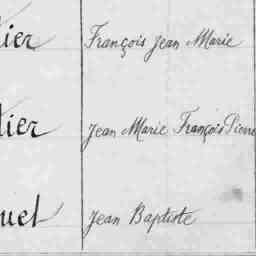 lier François Jean Marie
lier Jean Marie François Pierre
uel Jean Baptiste